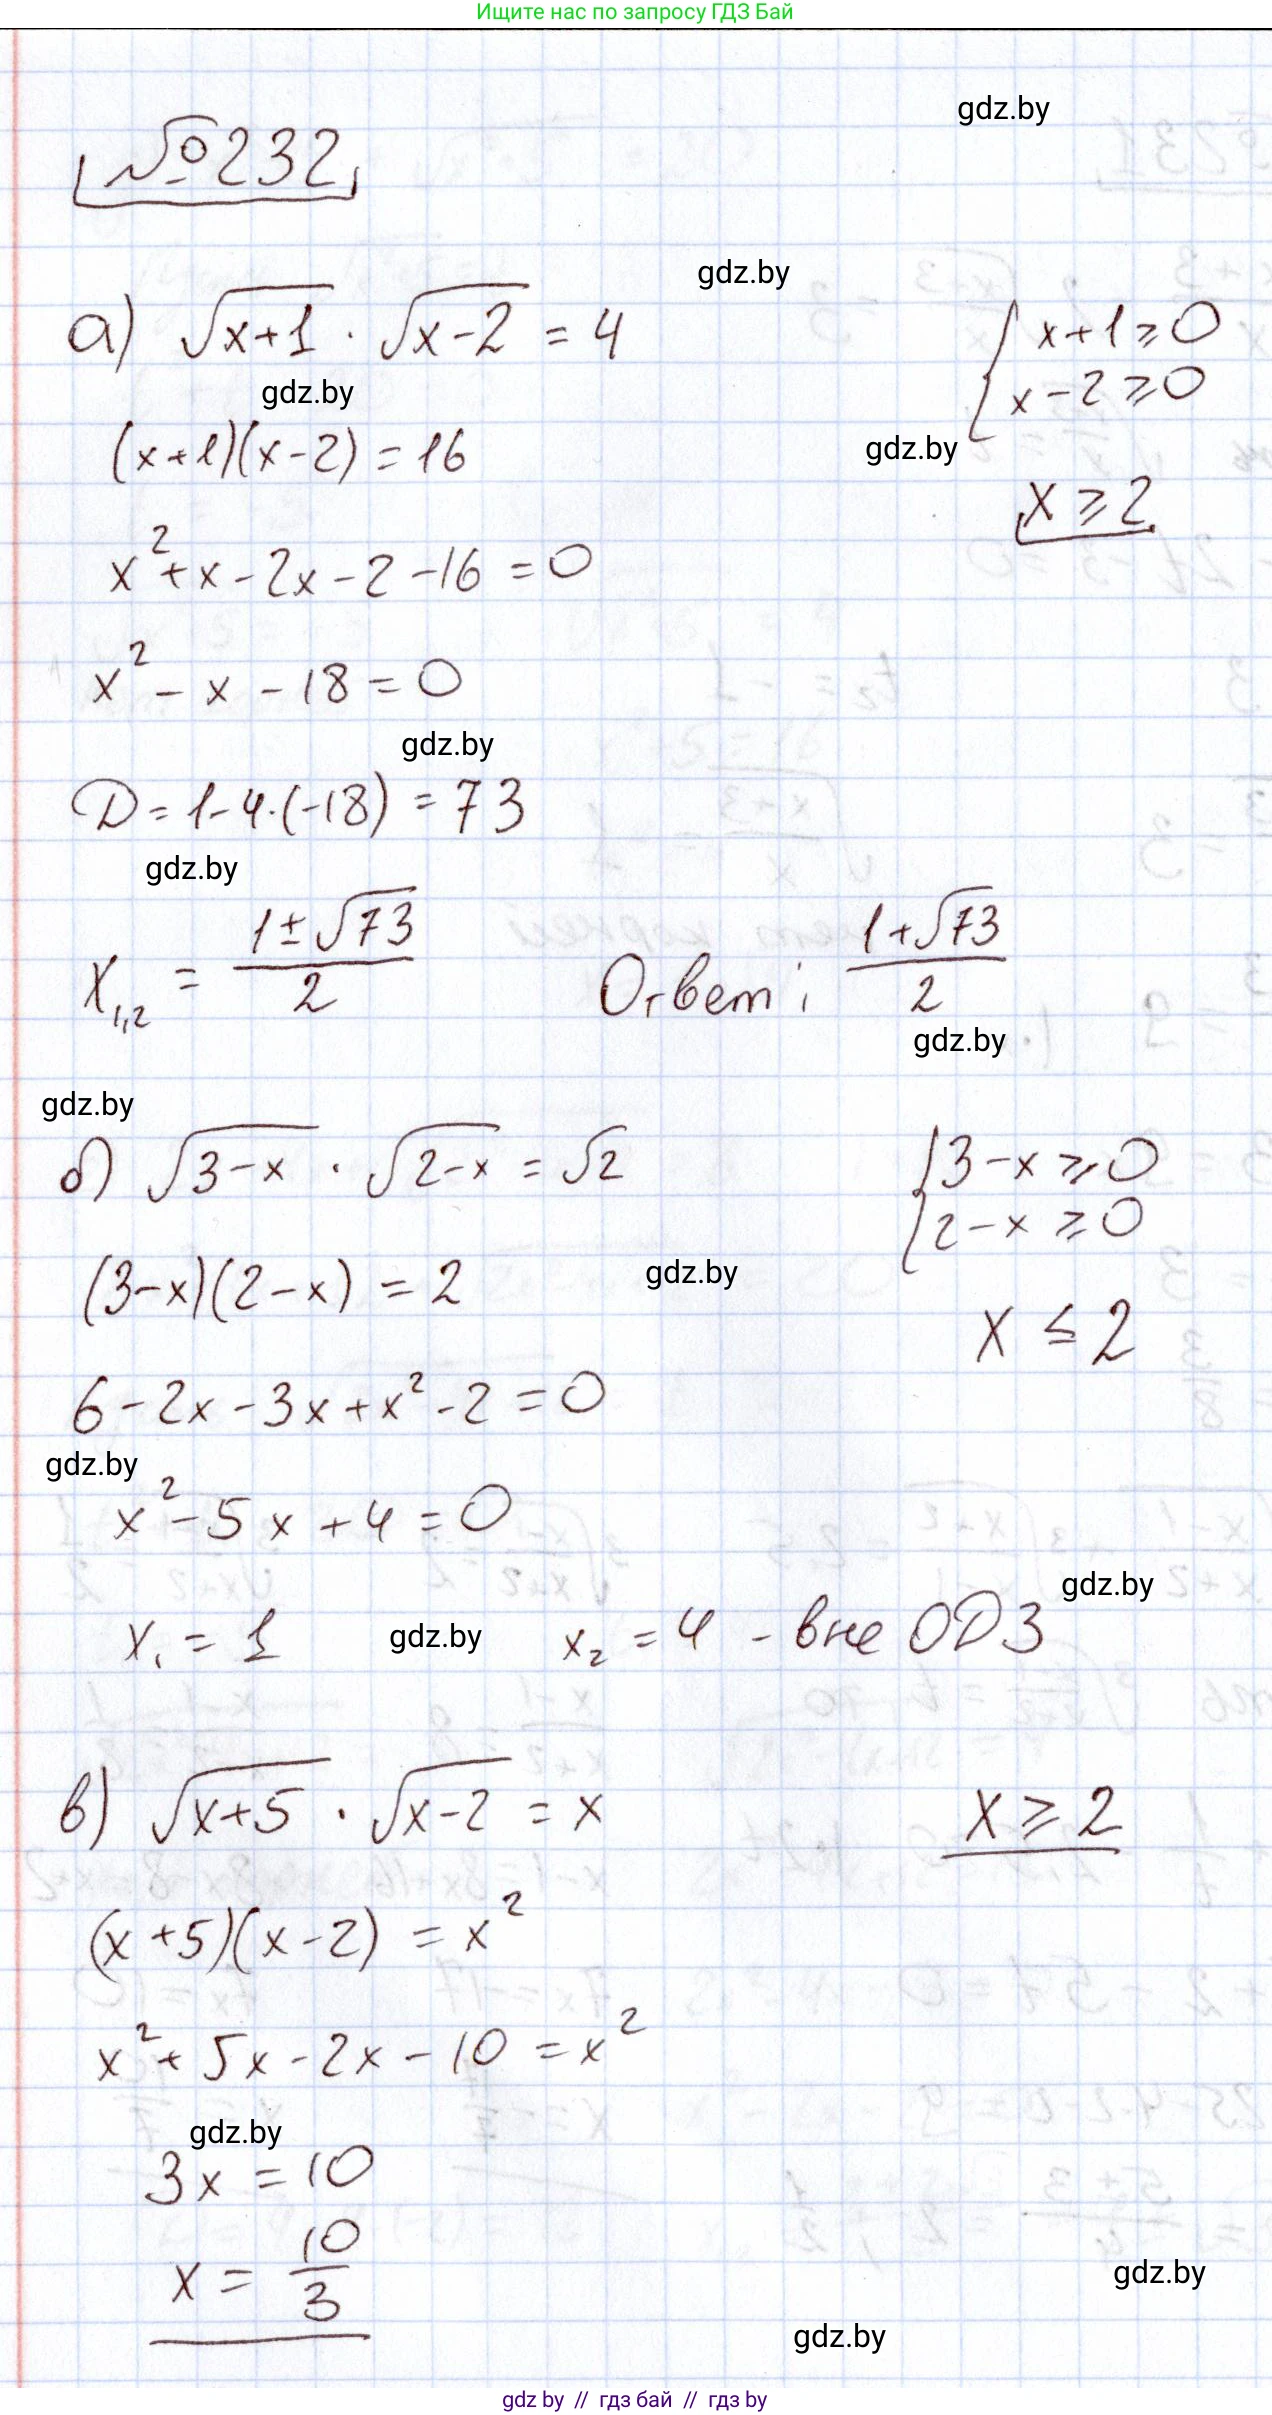 Ищите нас по запросу ГДЗ Бай
gdz.by
№232
gdz.by
а) √(x+1) · √(x-2) = 4
{ x+1 ≥ 0
x-2 ≥ 0
gdz.by
gdz.by
(x+1)(x-2) = 16
x ≥ 2
x² + x - 2x - 2 - 16 = 0
x² - x - 18 = 0
gdz.by
D = 1-4·(-18) = 73
gdz.by
x₁,₂ = (1±√73)/2
Ответ: (1+√73)/2
gdz.by
gdz.by
б) √(3-x) · √(2-x) = √2
{ 3-x ≥ 0
2-x ≥ 0
(3-x)(2-x) = 2
gdz.by
x ≤ 2
6 - 2x - 3x + x² - 2 = 0
gdz.by
x² - 5x + 4 = 0
gdz.by
x₁ = 1
gdz.by
x₂ = 4 - вне ОДЗ
в) √(x+5) · √(x-2) = x
x ≥ 2
(x+5)(x-2) = x²
x² + 5x - 2x - 10 = x²
gdz.by
3x = 10
x = 10/3
gdz.by
gdz.by
gdz by // гдз бай // гдз by